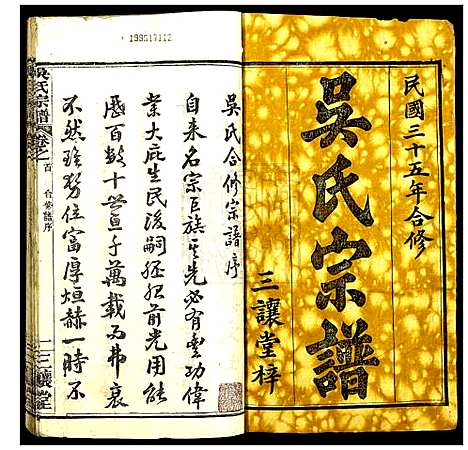 民國三十五年合修
吳氏宗譜
三讓堂梓
199517112
吳氏合修宗譜序
自来名宗巨族其先必有豐功偉
業大庇生民後嗣經紀前光用能
歷百数十世千萬載而弗衰
不然雖勢位富厚烜赫一時不
吳氏宗譜 卷之首 合修譜序 一 三讓堂